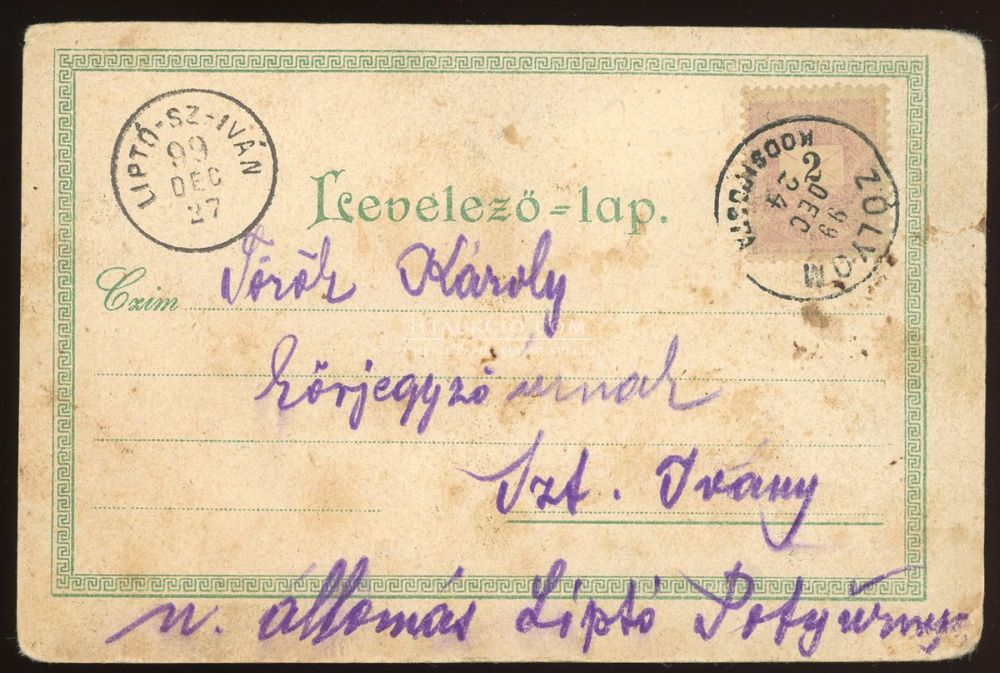 LIPTÓ-SZ-IVÁN
99
DEC
27
ZÓLYOM
99
DEC
24
2
Levelező=lap.
Czim
Török Károly
HTAUKCIO.COM
körjegyző urnak
Szt. Ivány
u. állomás Liptó